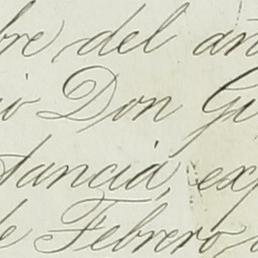 bre del añ
io Don Gu
tancia, exp
de Febrero